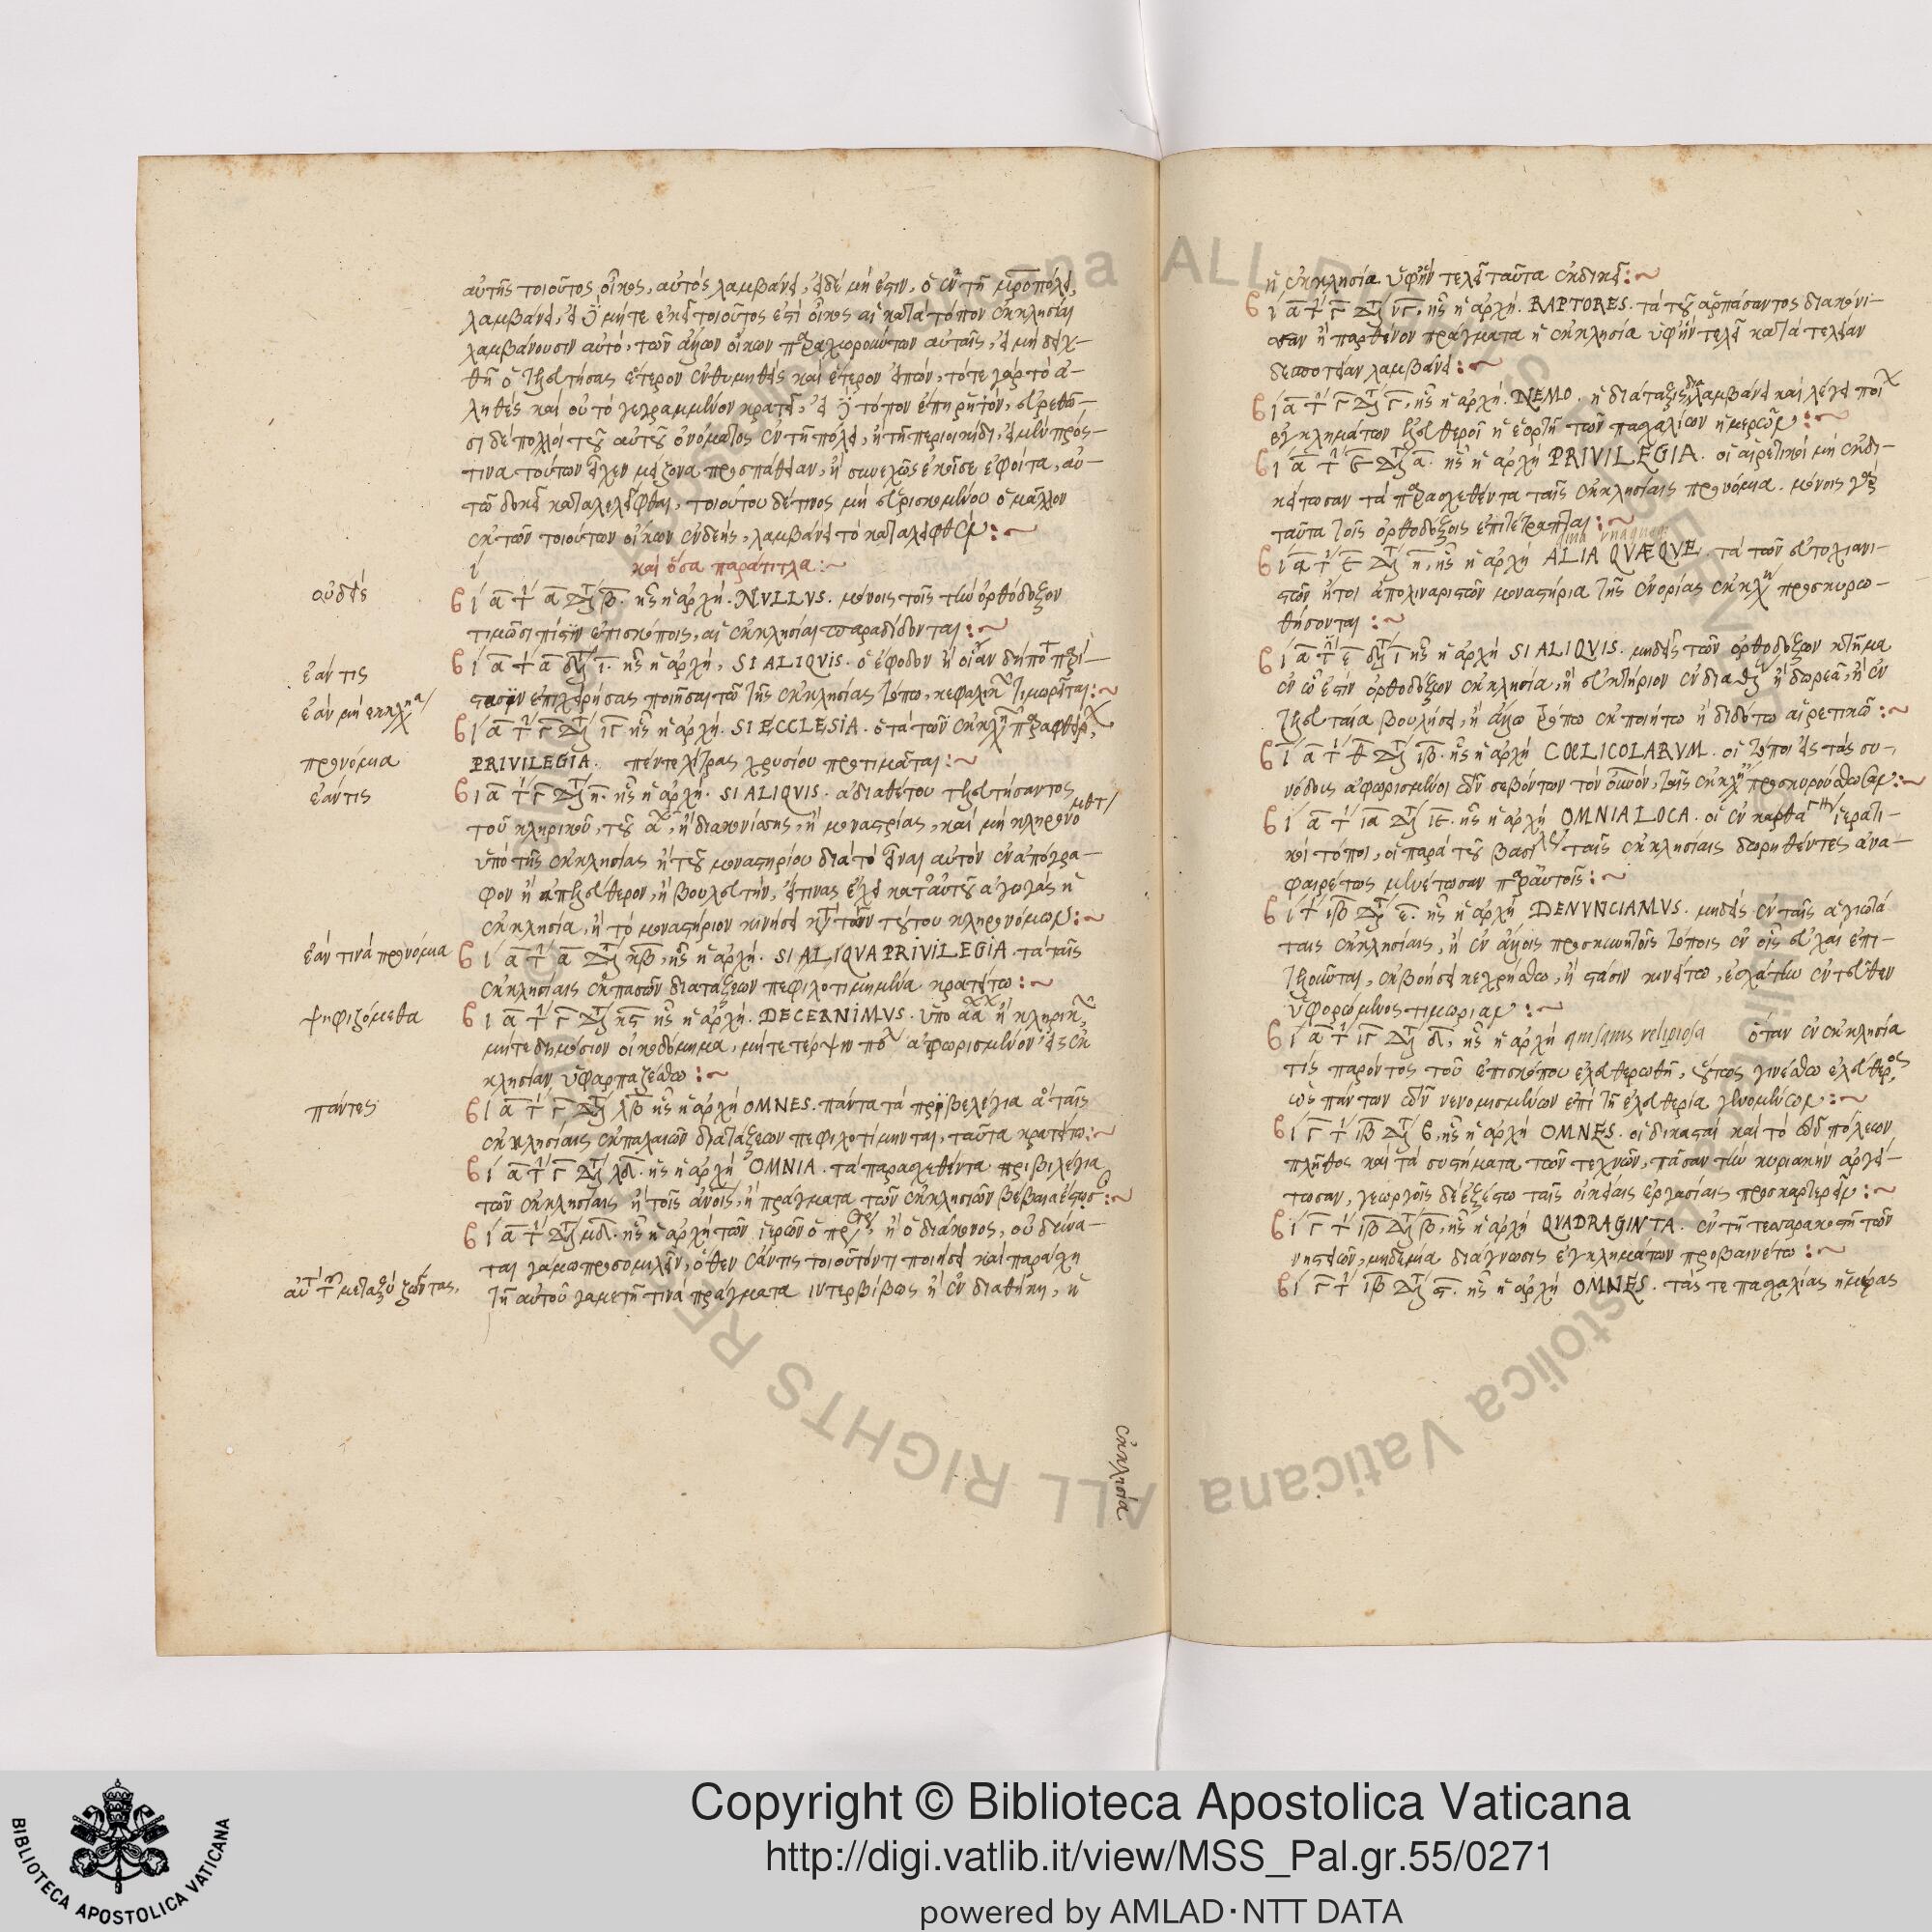 αὐτῆς τοιοῦτος οἶκος, αὐτὸς λαμβάνει, εἰ δὲ μή ἐστιν, ὁ ἐν τῇ μ̅ρ̅οπόλει,
λαμβάνει, εἰ δὲ μήτε ἐκεῖ τοιοῦτος ἐστὶ οἶκος αἱ κατὰ τόπον ἐκκλησίαι
λαμβάνουσιν αὐτό, τῶν ἄλλων οἴκων παραχωρούντων αὐταῖς, εἰ μὴ δειχ-
θῇ ὁ τελευτήσας ἕτερον ἐνθυμηθεὶς καὶ ἕτερον εἰπών, τότε γὰρ τὸ ἀ-
ληθὲς καὶ οὐ τὸ γεγραμμένον κρατεῖ,
σι δὲ πολλοὶ τοῦ αὐτοῦ ὀνόματος ἐν τῇ πόλει, ἢ τῇ περιοικίδι, εἰ μὲν πρός
τινα τούτων εἶχεν μείζονα προσπάθειαν, ἢ συνεχῶς ἐκεῖσε ἐφοίτα, αὐ-
τῷ δοκεῖ καταλελεῖφθαι, τοιούτου δέ τινος μὴ εὑρισκομένου ὁ μᾶλλον
ἐκ τῶν τοιούτων οἴκων ἐνδεής, λαμβάνει τὸ καταλειφθέν:~
καὶ ὅσα παράτιτλα:~
οὐδεὶς
β ι α τ α διατ β. ἧς ἡ ἀρχή. NVLLVS. μόνοις τοῖς τὴν ὀρθόδοξον
τιμῶσι πίστιν ἐπισκόποις, αἱ ἐκκλησίαι παραδίδονται:~
ἐάν τις
β ι α τ α διατ ι. ἧς ἡ ἀρχή, SI ALIQVIS. ὁ ἔφοδον ἢ οἵαν δήποτε περί-
στασιν ἐπιχειρήσας ποιῆσαι τῷ τῆς ἐκκλησίας τόπῳ, κεφαλικῶς τιμωρεῖται:~
ἐὰν μὴ ἐκκλησία
β ι α τ γ διατ ιγ ἧς ἡ ἀρχή. SI ECCLESIA. ὁ τὰ τῶν ἐκκλη παραφθείρ
προνόμια
PRIVILEGIA. πέντε λίτρας χρυσίου προτιμᾶται:~
ἐάν τις
β ι α τ γ διατ η. ἧς ἡ ἀρχή. SI ALIQVIS. ἀδιαθέτου τελευτήσαντος
τοῦ κληρικοῦ, τοῦ ἀ, ἢ διακονίσσης, ἢ μοναστρίας, καὶ μὴ κληρονο
ὑπὸ τῆς ἐκκλησίας ἢ τοῦ μοναστηρίου διὰ τὸ εἶναι αὐτὸν ἐναπόγρα-
φον ἢ ἀπελεύθερον, ἢ βουλευτήν, εἴτινας εἶχε κατ' αὐτοῦ ἀγωγὰς ἡ
ἐκκλησία, ἢ τὸ μοναστήριον κινήσει κατὰ τῶν τούτου κληρονόμων:~
ἐάν τινα προνόμια
β ι α τ α διατ κβ, ἧς ἡ ἀρχή. SI ALIQVA PRIVILEGIA. τὰ ταῖς
ἐκκλησίαις ἐκ πασῶν διατάξεων πεφιλοτιμημένα κρατείτω:~
ψηφιζόμεθα
β ι α τ γ διατ κς ἧς ἡ ἀρχή. DECERNIMVS. ὑπὸ ἀ ἢ κληρικ
μήτε δημόσιον οἰκοδόμημα, μήτε τέρψιν ἀφωρισμένον εἰς ἐκ
κλησίαν ὑφαρπαζέσθω:~
πάντες
β ι α τ γ διατ λβ ἧς ἡ ἀρχή OMNES. πάντα τὰ πριβελέγια ἃ ταῖς
ἐκκλησίαις ἐκ παλαιῶν διατάξεων πεφιλοτίμηνται, ταῦτα κρατείτω:~
β ι α τ γ διατ λδ. ἧς ἡ ἀρχή OMNIA. τὰ παρασχεθέντα πριβιλέγια
τῶν ἐκκλησίαις ἢ τοῖς ἀ̅νοις, ἢ πράγματα τῶν ἐκκλησιῶν βέβαια ἔστωσ:~
β ι α τ διατ μδ. ἧς ἡ ἀρχὴ τῶν ἱερῶν ὁ πρ, ἢ ὁ διάκονος, οὐ δύνα-
ται γάμῳ προσομιλεῖν, ὅθεν ἐάν τις τοιοῦτόν τι ποιήσει καὶ παράσχῃ
ἀντὶ τοῦ μεταξὺ ζῶντας.
τῇ αὐτοῦ γαμετῇ τινὰ πράγματα ιντερβίβως ἢ ἐν διαθήκῃ, ἡ
ἐκκλησία
ἡ ἐκκλησία ὑφ' ἣν τελεῖ ταῦτα ἐκδικεῖ:~
β ι α τ γ διατ νγ, ἧς ἡ ἀρχή. RAPTORES. τὰ τοῦ ἁρπάσαντος διακόνι-
σσαν ἢ παρθένον πράγματα ἡ ἐκκλησία ὑφ' ἣν τελεῖ κατὰ τελείαν
δεσποτείαν λαμβάνει:~
β ι α τ γ διατ γ, ἧς ἡ ἀρχή. NEMO. ἡ διάταξις διαλαμβάνει καὶ λέγει
ἐγκλημάτων ἐλευθεροῖ ἡ ἑορτὴ τῶν πασχαλίων ἡμερῶν:~
β ι α τ ε διατ α. ἧς ἡ ἀρχή PRIVILEGIA. οἱ αἱρετικοὶ μὴ ἐκδι-
κείτωσαν τὰ παρασχεθέντα ταῖς ἐκκλησίαις προνόμια. μόνοις γὰρ
ταῦτα τοῖς ὀρθοδόξοις ἐπιτέτραπται:~
β ι α τ ε διατ η, ἧς ἡ ἀρχή ALIA QVÆQVE. τὰ τῶν εὐτυχιανι-
στῶν ἤτοι ἀπολιναριστῶν μοναστήρια τῆς ἐνορίας ἐκκλη προσκυρω-
θήσονται:~
β ι α τ ε διατ ι ἧς ἡ ἀρχή SI ALIQVIS. μηδεὶς τῶν ὀρθοδόξων κτῆμα
ἐν ᾧ ἐστὶν ὀρθοδόξων ἐκκλησία, ἢ εὐκτήριον ἐν διαθήκῃ ἢ δωρεᾷ, ἢ ἐν
τελευταίᾳ βουλήσει, ἢ ἄλλῳ τρόπῳ ἐκποιείτω ἢ διδότω αἱρετικῷ:~
β ι α τ θ διατ ιβ. ἧς ἡ ἀρχή CŒLICOLARVM. οἱ τόποι εἰς τὰς συ-
νόδους ἀφωρισμένοι τῶν σεβόντων τὸν οὐ̅νόν, ταῖς ἐκκλη προσκυρούσθωσαν:~
β ι α τ ια διατ ιε. ἧς ἡ ἀρχή OMNIA LOCA. οἱ ἐν καρθα ἱερατι-
κοὶ τόποι, οἱ παρὰ τοῦ βασι ταῖς ἐκκλησίαις δωρηθέντες ἀνα-
φαιρέτως μενέτωσαν παρ' αὐτοῖς:~
β ι τ ιβ διατ ε. ἧς ἡ ἀρχή DENVNCIAMVS. μηδεὶς ἐν ταῖς ἁγιωτά
ταις ἐκκλησίαις, ἢ ἐν ἄλλοις προσκυνητοῖς τόποις ἐν οἷς εὐχαὶ ἐπι-
τελοῦνται, ἐκβοήσει κεχρήσθω, ἢ στάσιν κινείτω, ἐσχάτην ἐντεῦθεν
ὑφορώμενος τιμωρίαν:~
β ι α τ ιγ διατ δ, ἧς ἡ ἀρχή quisquis religiosa ὅταν ἐν ἐκκλησίᾳ
τὶς παρόντος τοῦ ἐπισκόπου ἐλευθερωθῇ, οὕτως γινέσθω ἐλεύθερος,
ὡς πάντων τῶν νενομισμένων ἐπὶ τῇ ἐλευθερίᾳ γενομένων:~
β ι γ τ ιβ διατ β, ἧς ἡ ἀρχή OMNES. οἱ δικασταὶ καὶ τὸ τῶν πόλεων
πλῆθος καὶ τὰ συστήματα τῶν τεχνῶν, πᾶσαν τὴν κυριακὴν ἀργεί-
τωσαν, γεωργοῖς δὲ ἐξέστω ταῖς οἰκείαις ἐργασίαις προσκαρτερεῖν:~
β ι γ τ ιβ διατ β, ἧς ἡ ἀρχή QVADRAGINTA. ἐν τῇ τεσσαρακοστῇ τῶν
νηστειῶν, μηδεμία διάγνωσις ἐγκλημάτων προβαινέτω:~
β ι γ τ ιβ διατ ς. ἧς ἡ ἀρχή OMNES. τάς τε πασχαλίας ἡμέρας
BIBLIOTECA APOSTOLICA VATICANA
Copyright © Biblioteca Apostolica Vaticana
http://digi.vatlib.it/view/MSS_Pal.gr.55/0271
powered by AMLAD·NTT DATA